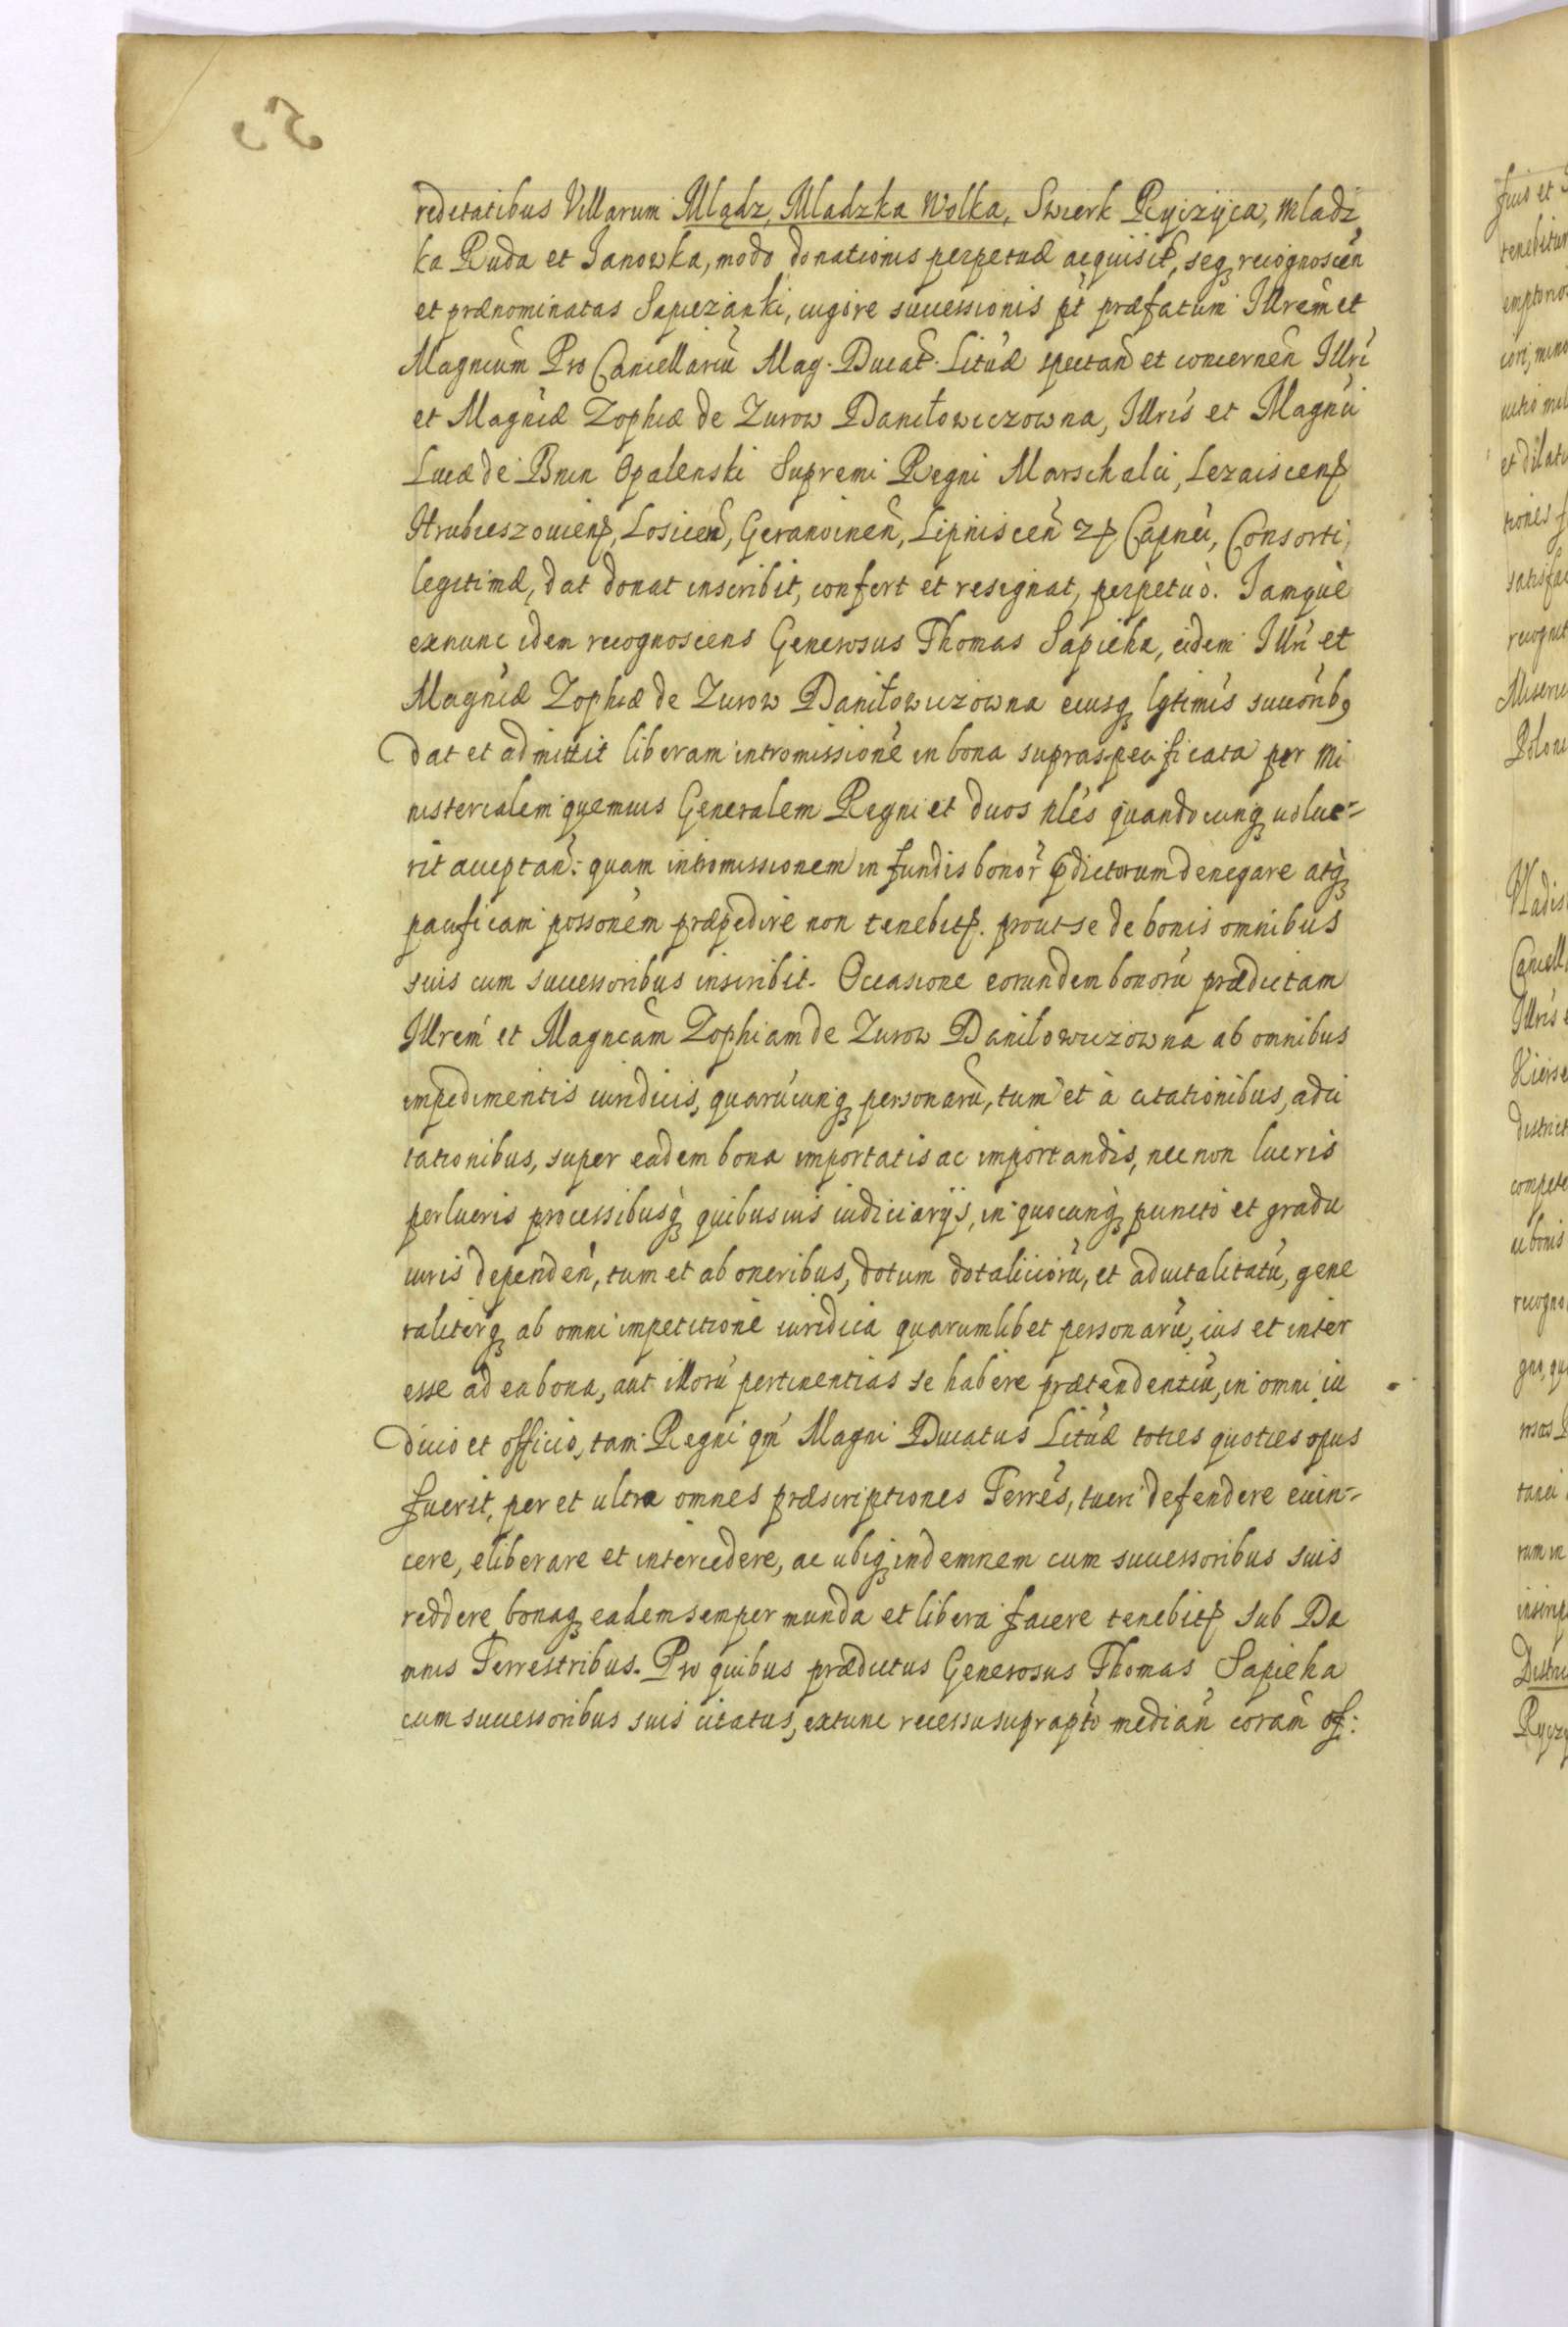 reditatibus Villarum Mlądz, Mladzka Wolka, Swierk Ryczyca, Mladz
ka Ruda et Janowka, modo donationis perpetuæ acquisit, seq recognoscen̄
et prænominatas Sapiezanki, iugire successionis pt præfatum Illrem et
Magncum Pro Cancellariū Mag. Ducat. Lituæ spectan̄ et concernen̄ Illri
et Magnicæ Zophiæ de Zurow Daniłowiczowna, Illris et Magnci
Lucæ de Bnin Opalenski Supremi Regni Marschalci, Lezaiscen
Hrubieszouien, Losicen̄, Geranoinen̄, Lipniscen̄ Capnei, Consorti
legitimæ, dat donat inscribit, confert et resignat, perpetuò. Jamquè
exnunc idem recognoscens Generosus Thomas Sapieha, eidem Illri et
Magnicæ Zophiæ de Zurow Daniłowiczowna eiusq lgtimis succōribꝫ
dat et admittit liberam intromissionē in bona supraspecificata per Mi
nisterialem quemuis Generalem Regni et duos nles quandocunq uolue-
rit acceptan̄: quam intromissionem in fundis bonor̄ pdictorum denegare atq
pacificam possonem præpedire non tenebit. prout se de bonis omnibus
suis cum successoribus inscribit. Occasione eorundem bonorū prædictam
Illrem et Magncam Zophiam de Zurow Daniłowiczowna ab omnibus
impedimentis iuridicis, quarūcunq personarū, tum et à citationibus, adci
tationibus, super eadem bona importatis ac importandis, nec non lucris
perlucris processibusq quibusuis iudiciarijs, in quocunq puncto et gradu
iuris dependen̄, tum et ab oneribus, dotum dotalitiorū, et aduitalitatū, gene
raliterq ab omni impetitione iuridica quarumlibet personarū, ius et inter
esse ad ea bona, aut illorū pertinentias se habere prætendentiū, in omni iu
dicio et officio, tam Regni qm Magni Ducatus Lituæ toties quoties opus
fuerit, per et ultra omnes præscriptiones Terres, tueri defendere euin-
cere, eliberare et intercedere, ac ubiq indemnem cum successoribus suis
reddere, bonaq eadem semper munda et libera facere tenebit sub Da
mnis Terrestribus. Pro quibus prædictus Generosus Thomas Sapieha
cum successoribus suis citatus, extunc recessu suprapto median̄ coram of: